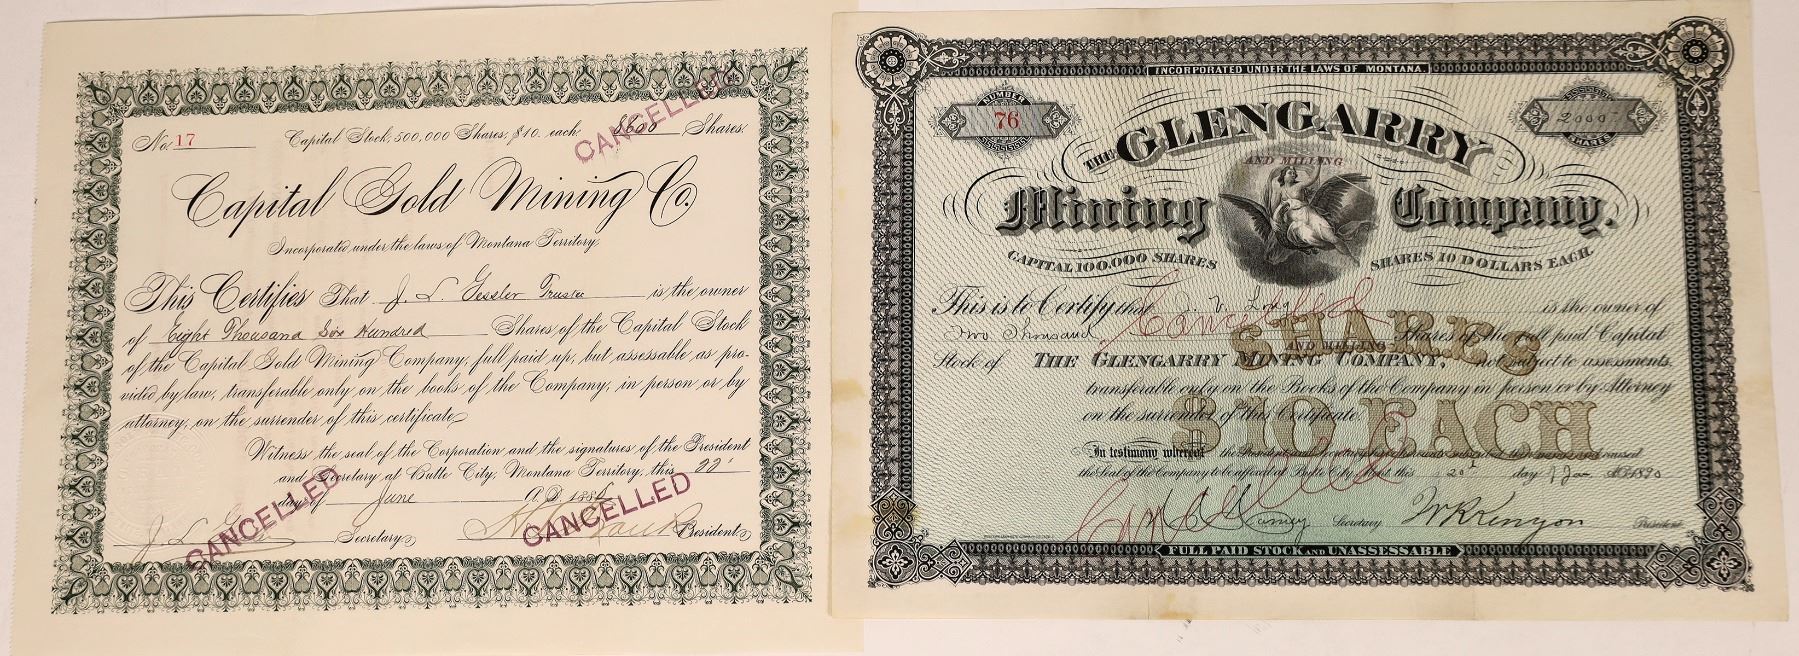 No. 17 Capital Stock, 500,000 Shares, $10. each. 8600 Shares.
CANCELLED
Capital Gold Mining Co.
Incorporated under the laws of Montana Territory
This Certifies That J. L. Tessler Trustee is the owner
of Eight Thousand Six Hundred Shares of the Capital Stock
of the Capital Gold Mining Company, full paid up, but assessable as pro-
vided by law, transferable only on the books of the Company, in person or by
attorney, on the surrender of this certificate
Witness the seal of the Corporation and the signatures of the President
and Secretary at Butte City, Montana Territory, this 22d
day of June A.D. 188
CANCELLED
CANCELLED
J. L. Secretary President
INCORPORATED UNDER THE LAWS OF MONTANA.
NUMBER
76
2000
SHARES
THE GLENGARRY
AND MILLING
Mining Company.
CAPITAL 100,000 SHARES SHARES 10 DOLLARS EACH.
This is to Certify that is the owner of
Two Thousand Shares of the full paid Capital
Cancelled
SHARES
AND MILLING
Stock of THE GLENGARRY MINING COMPANY, not subject to assessments,
transferable only on the Books of the Company in person or by Attorney
on the surrender of this Certificate
$10 EACH
In testimony whereof the President and Secretary have hereunto subscribed their names and caused
the seal of the Company to be affixed at Butte City, this 20th day of Jan A.D. 1890
Cancelled
Secretary W R Kenyon President
FULL PAID STOCK AND UNASSESSABLE